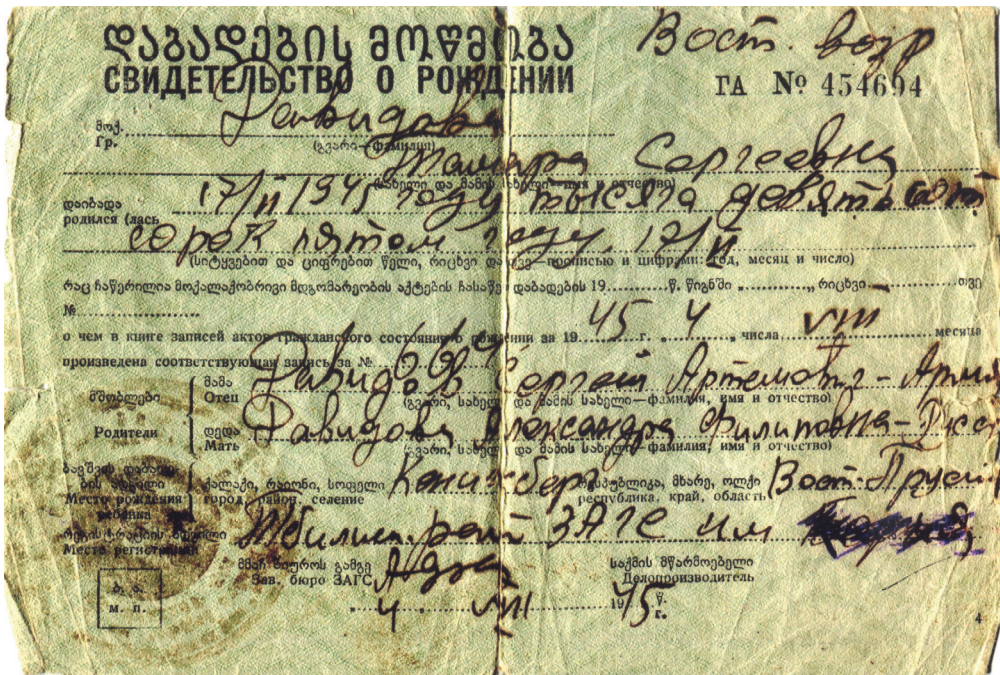 დაბადების მოწმობა Вост. возр
СВИДЕТЕЛЬСТВО О РОЖДЕНИИ
ГА № 454694
მოქ.
Гр. Давидова
(გვარი—фамилия)
Тамара Сергеевна
(სახელი და მამის სახელი—имя и отчество)
დაიბადა
родился (лась 17/II 1945 году тысяча девятьсот
сорок пятом году. 17/II
(სიტყვებით და ციფრებით წელი, რიცხვი და თვე—прописью и цифрами: год, месяц и число)
რაც ჩაწერილია მოქალაქობრივი მდგომარეობის აქტების ჩასაწერ დაბადების 19 წ. წიგნში „ რიცხვი თვე
№
о чем в книге записей актов гражданского состояния о рождении за 19 45 г. 4 числа VIII месяца
произведена соответствующая запись за №
მშობლები
Родители
მამა
Отец Давидов Сергей Артемович - Армя
(გვარი, სახელი და მამის სახელი—фамилия, имя и отчество)
დედა
Мать Давидова Александра Филиповна - Русс
(გვარი, სახელი და მამის სახელი—фамилия, имя и отчество)
ბავშვის დაბადების ადგილი
Место рождения ребенка
ქალაქი, რაიონი, სოფელი
город, район, селение Кенигсбер
რესპუბლიკა, მხარე, ოლქი
республика, край, область Вост. Пруси
რეგისტრაციის ადგილი
Место регистрации Тбилиси рай ЗАГС им
მმაჩ ბიუროს გამგე
Зав. бюро ЗАГС
საქმის მწარმოებელი
Делопроизводитель
ბ. ა.
м. п.
„ 4 „ VIII 19 45 წ.
г.
4